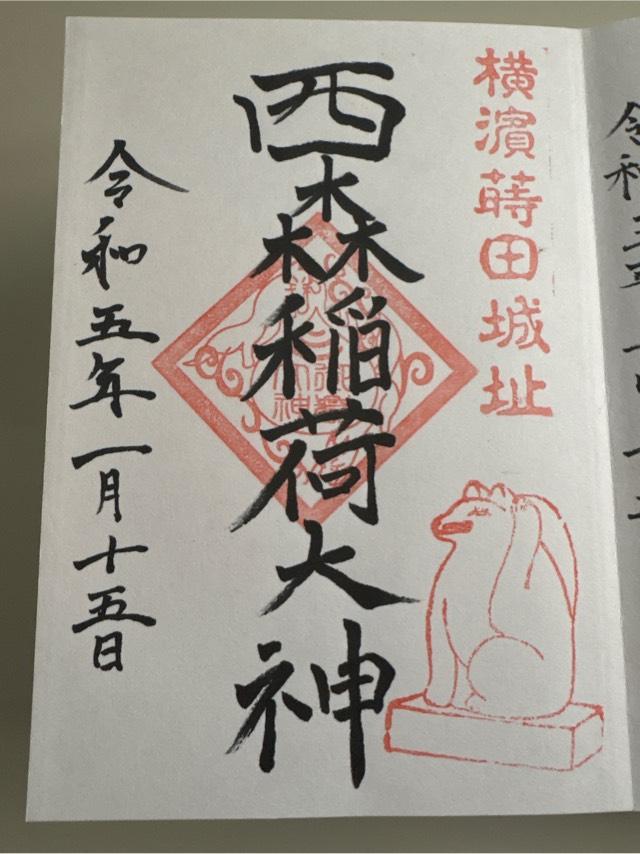 横濱蒔田城址
西森稲荷大神
令和五年一月十五日